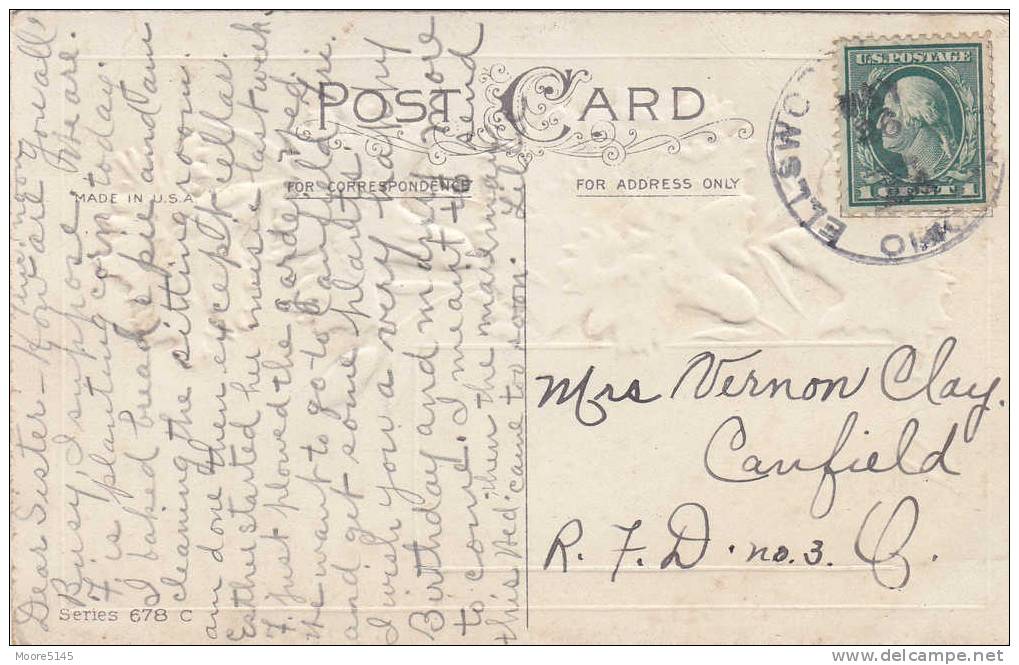 POST CARD
FOR CORRESPONDENCE
FOR ADDRESS ONLY
MADE IN U.S.A.
U.S. POSTAGE
1 CENT 1
ELLSWO
HIO
Dear Sister - How are you all
Busy I suppose. We are.
F is planting corn today.
I baked bread & pie and am
cleaning the sitting room
am done then except cellar.
Esther started her music last week
F. just plowed the garden Wed.
We want to go to Canfield Fri.
and get some plants.
I wish you a very happy
Birthday and many more
to come. I meant to send
this Wed. then the mailman
came too soon. Lib.
Mrs Vernon Clay.
Canfield
R. F. D. no. 3. O.
Series 678 C
Moore5145